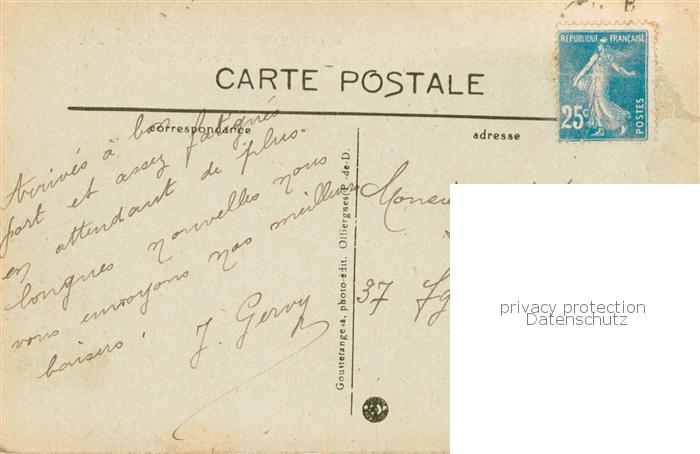 B
REPUBLIQUE FRANÇAISE
25c
POSTES
CARTE POSTALE
correspondance
adresse
Arrivés à bon
port et assez fatigués
en attendant de plus
longues nouvelles nous
vous envoyons nos meilleurs
baisers.
J. Gervy
Monsieur
37 Fg
Gouttefangeas, photo-édit. Olliergues P.-de-D.
privacy protection
Datenschutz